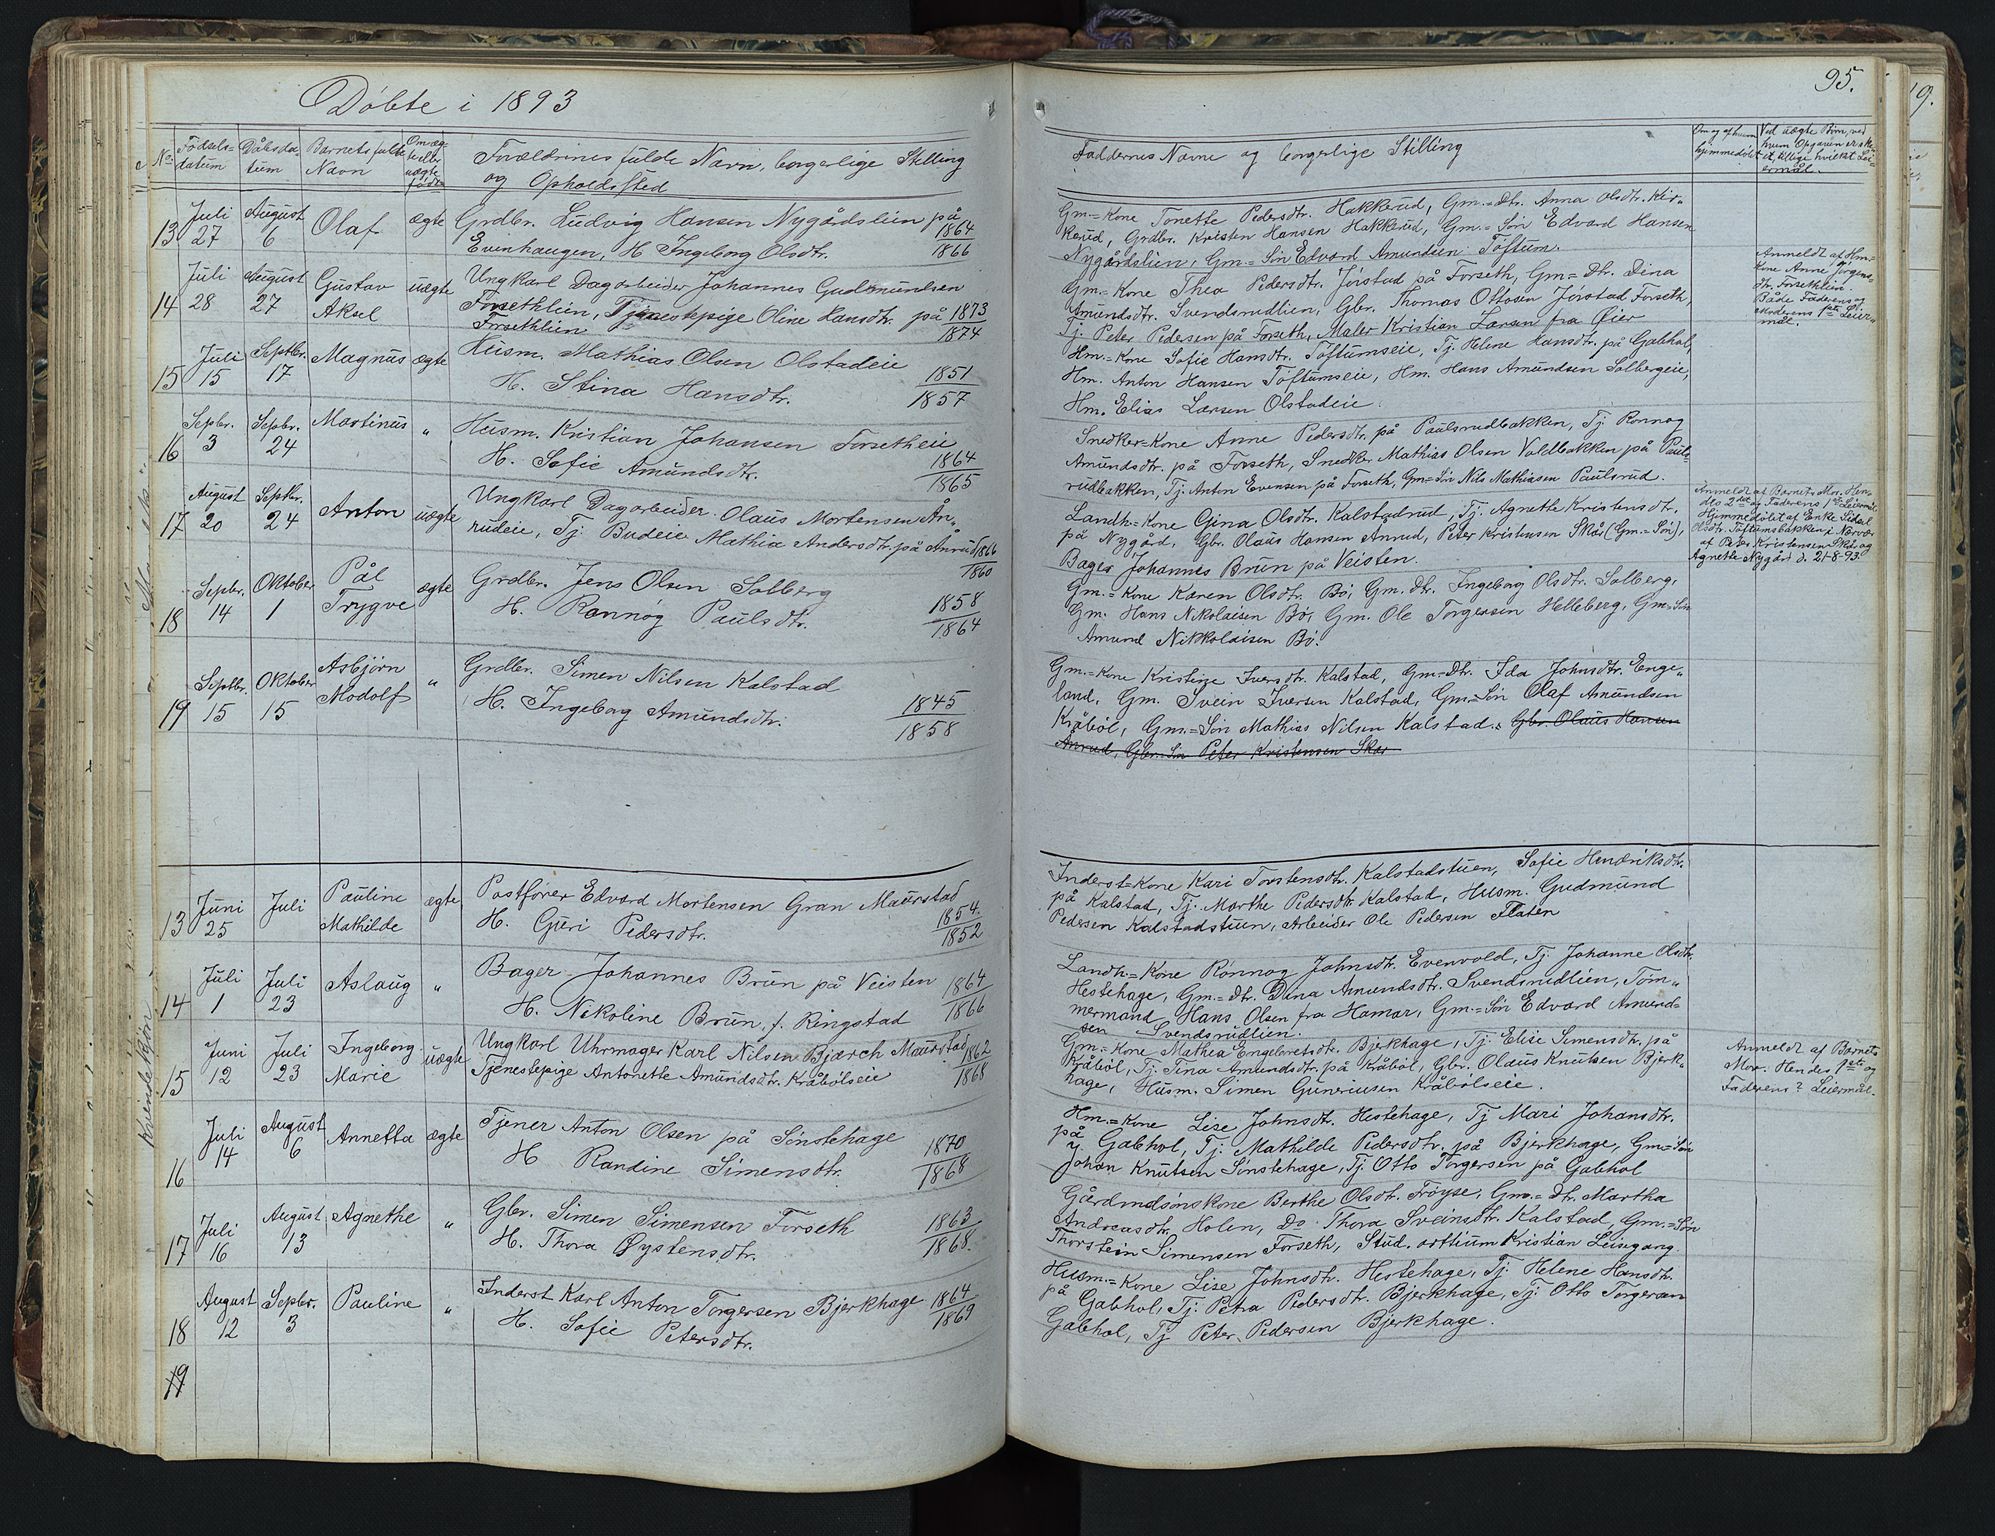 Døbte i 1893
No
Fødsels-
datum
Dåbsda-
tum
Barnets fulde
Navn
Om æg-
te eller
uægte
født
Forældrenes fulde Navn, borgerlige Stilling
og Opholdssted
13
Juli
27
August
6
Olaf
ægte
Grdbr. Ludvig Hansen Nygårdslien på 1864
Evenhaugen, H. Ingeborg Olsdtr. 1866
14
Juli
28
August
27
Gustav
Aksel
uægte
Ungkarl Dagarbeider Johannes Gudmundsen
Forsethlien, Tjenestepige Oline Hansdtr. på 1873
Forsethlien 1874
15
Juli
15
Septbr.
17
Magnus
ægte
Husm. Mathias Olsen Olstadeie 1851
H. Stina Hansdtr. 1857
16
Sepbr.
3
Sepbr.
24
Martinus
"
Husm. Kristian Johansen Forsetheie 1864
H. Sofie Amundsdtr. 1865
17
August
20
Septbr.
24
Anton
uægte
Ungkarl Dagarbeider Olaus Mortensen Ån-
rudeie, Tj. Budeie Mathia Andersdtr. på Ånrud 1866
1860
18
Sepbr.
14
Oktober
1
Pål
Trygve
ægte
Grdbr. Jens Olsen Solberg 1858
H. Rønnøg Paulsdtr. 1864
19
Septbr.
15
Oktober
15
Asbjørn
Modolf
"
Grdbr. Simen Nilsen Kalstad 1845
H. Ingeborg Amundsdtr. 1858
Kvindekjøn
13
Juni
25
Juli
Pauline
Mathilde
ægte
Postfører Edvard Mortensen Gran Maurstad 1854
H. Guri Pedersdtr. 1852
14
Juli
1
Juli
23
Aslaug
"
Bager Johannes Brun på Veisten 1864
H. Nikoline Brun, f. Ringstad 1866
15
Juni
12
Juli
23
Ingeborg
Marie
uægte
Ungkarl Uhrmager Karl Nilsen Bjærch Maurstad 1862
Tjenestepige Antonette Amundsdtr. Kråbølseie 1868
16
Juli
14
August
6
Annetta
ægte
Tjener Anton Olsen på Sønstehage 1870
H. Randine Simensdtr. 1868
17
Juli
16
August
13
Agnethe
"
Gbr. Simen Simensen Forseth 1863
H. Thora Øystensdtr. 1868
18
August
12
Sepbr.
3
Pauline
"
Inderst Karl Anton Torgersen Bjerkhage 1864
H. Sofie Petersdtr. 1869
19
95.
Faddernes Navne og borgerlige Stilling
Om og af hvem
hjemmedøbt
Ved uægte Børn, ved
hvem Opgaven er sk-
et, tillige hvilket Lei-
ermål.
Gm.=Kone Tonette Pedersdtr. Hakkerud, Gm.=Dtr. Anna Olsdtr. Kir-
kerud, Grdbr. Kristen Hansen Hakkerud, Gm.=Søn Edvard Hansen
Nygårdslien, Gm=Søn Edvard Amundsen Toftum.
Gm=Kone Thea Pedersdtr. Jørstad på Forseth, Gm=Dtr. Dina
Amundsdtr. Svendsrudlien, Gbr. Thomas Ottosen Jørstad Forseth,
Tj. Peter Pedersen på Forseth, Maler Kristian Larsen fra Øier
Anmeldt af Hm-
Kone Anne Jørgens-
dtr. Forsethlien.
Både Faderens og
Moderens 1ste Leier-
mål.
Hm.=Kone Sofie Hansdtr. Toftumseie, Tj. Helene Hansdtr. på Gabhol,
Hm. Anton Hansen Toftumseie, Hm. Hans Amundsen Solbergeie,
Hm. Elias Larsen Olstadeie.
Snedker=Kone Anne Pedersdtr. på Paulsrudbakken, Tj. Rønnog
Amundsdtr. på Forseth, Snedker Mathias Olsen Voldbakken på Pauls-
rudbakken, Tj. Anton Evensen på Forseth, Gm=Søn Nils Mathiasen Paulsrud.
Landh=Kone Gina Olsdtr. Kalstadrud, Tj. Agnethe Kristensdtr.
på Nygård, Gbr. Olaus Hansen Anrud, Peter Kristensen Skår (Gm.=Søn),
Bager Johannes Brun på Veisten.
Anmeldt af Barnets Mor. Hen-
des 2det og Faderens 1ste Leiermål.
Hjemmedøbt af Enke Sidsel
Olsdtr. Toftumsbakken i Nærvær
af Peter Kristensen Skår og
Agnethe Nygård d. 21-8-93.
Gm.=Kone Karen Olsdtr. Bø, Gm. Dtr. Ingeborg Olsdtr. Solberg,
Gm. Hans Nikolaisen Bø, Gm. Ole Torgersen Helleberg, Gm=Søn
Amund Nikkolaisen Bø.
Gm=Kone Kristine Iversdtr. Kalstad, Gm=Dtr. Ida Johnsdtr. Enge-
land, Gm. Svein Iversen Kalstad, Gm=Søn Olaf Amundsen
Kråbøl, Gm.=Søn Mathias Nilsen Kalstad. Gbr. Olaus Hansen
Anrud, Gbr.Søn Peter Kristensen Skår
Inderst=Kone Kari Torstensdtr. Kalstadstuen, Sofie Hendriksdtr.
på Kalstad, Tj. Marthe Pedersdtr. Kalstad, Husm. Gudmund
Pedersen Kalstadstuen, Arbeider Ole Pedersen Flaten
Landh=Kone Rønnog Johnsdtr. Evenvold, Tj. Johanne Olsdtr.
Hestehage, Gm.=Dtr. Dina Amundsdtr. Svendsrudlien, Tøm-
mermand Hans Olsen fra Hamar, Gm.=Søn Edvard Amund-
sen Svendsrudlien.
Gm=Kone Mathea Engebretsdtr. Bjerkhage, Tj. Elise Simensdtr. på
Kråbøl, Tj. Sina Amundsdtr. på Kråbøl, Gbr. Olaus Knutsen Bjerk-
hage, Husm. Simen Gunriusen Kråbølseie.
Anmeldt af Barnets
Mor. Hendes 1ste og
Faderens ? Leiermål.
Hm.=Kone Lise Johnsdtr. Hestehage, Tj. Mari Johansdtr.
på Gabhol, Tj. Mathilde Pedersdtr. på Bjerkhage, Gm=Søn
Johan Knutsen Sønstehage, Tj. Otto Torgersen på Gabhol
Gårdmdsønskone Berthe Olsdtr. Frøyse, Gm.=Dtr. Martha
Andreasdtr. Holen, Do Thora Sveinsdtr. Kalstad, Gm.=Søn
Thorstein Simensen Forseth, Stud. artium Kristian Leisegang.
Husm.=Kone Lise Johnsdtr. Hestehage, Tj. Helene Hansdtr.
på Gabhol, Tj. Petra Pedersdtr. Bjerkhage, Tj. Otto Torgersen
Gabhol, Tj Peter Pedersen Bjerkhage.